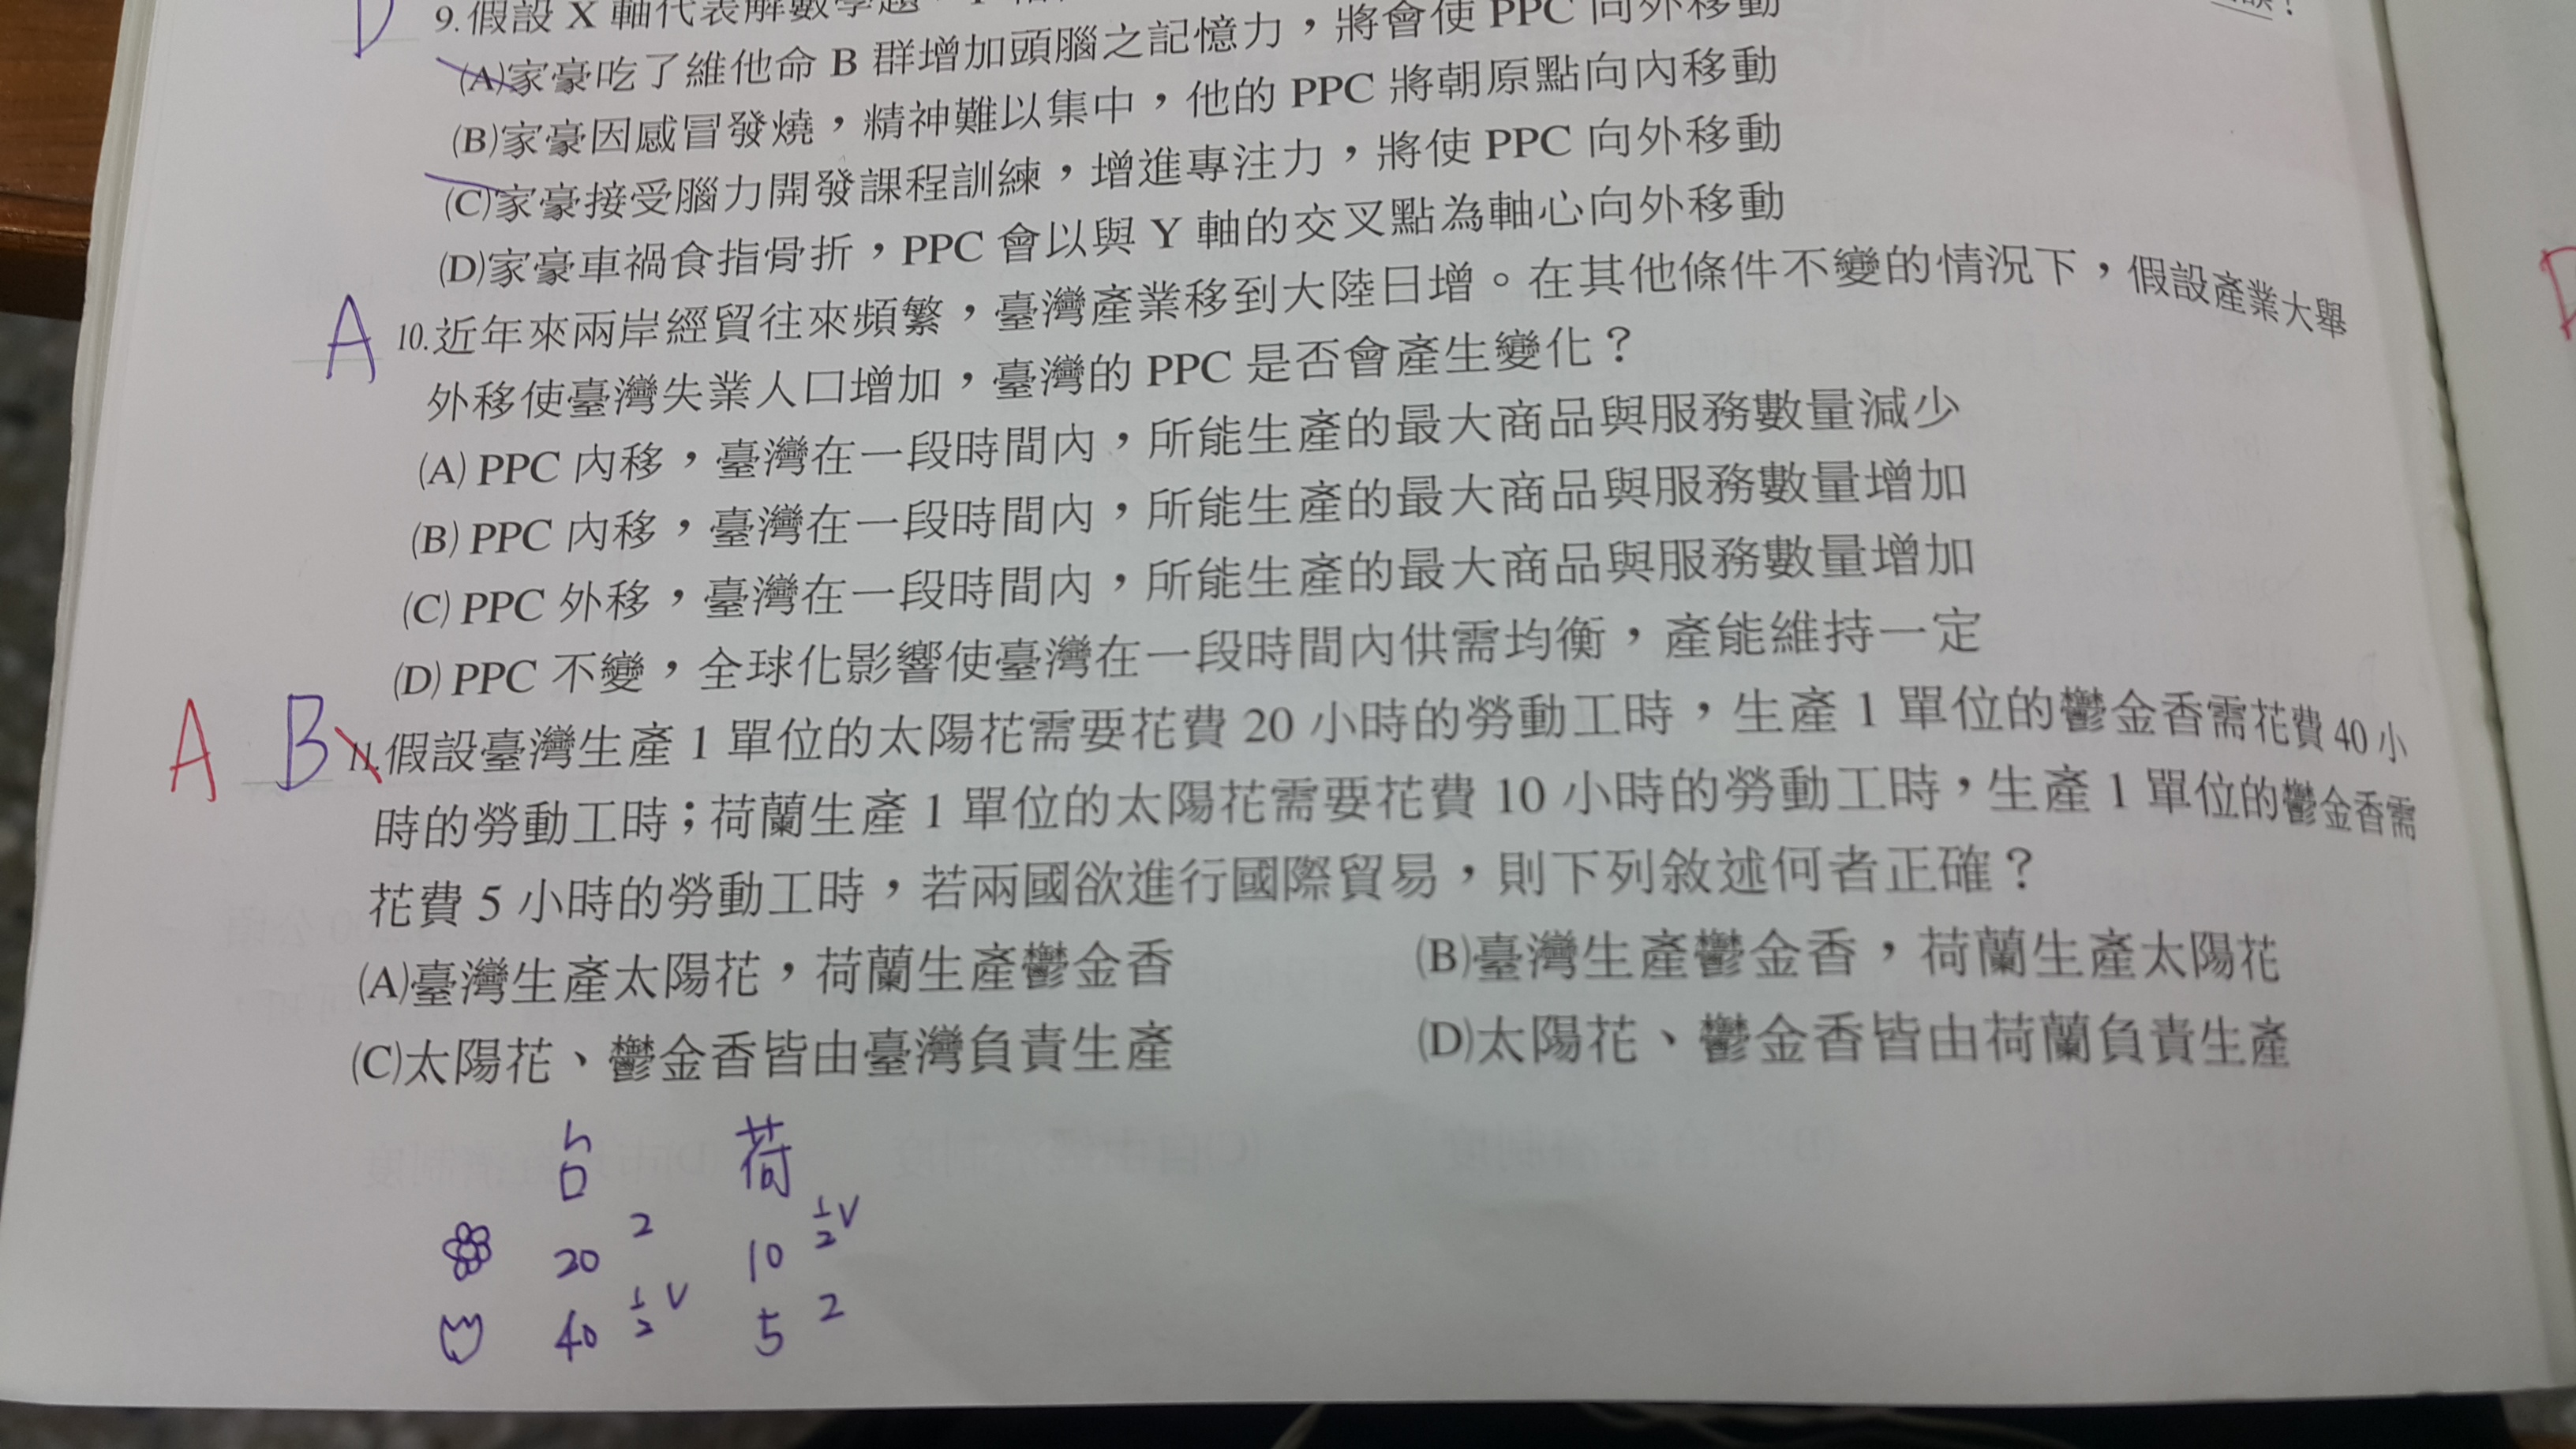 D
9.假設 X 軸代表解數學題，
(A)家豪吃了維他命 B 群增加頭腦之記憶力，將會使 PPC 向外移動
(B)家豪因感冒發燒，精神難以集中，他的 PPC 將朝原點向內移動
(C)家豪接受腦力開發課程訓練，增進專注力，將使 PPC 向外移動
(D)家豪車禍食指骨折，PPC 會以與 Y 軸的交叉點為軸心向外移動
A 10.近年來兩岸經貿往來頻繁，臺灣產業移到大陸日增。在其他條件不變的情況下，假設產業大舉
外移使臺灣失業人口增加，臺灣的 PPC 是否會產生變化？
(A) PPC 內移，臺灣在一段時間內，所能生產的最大商品與服務數量減少
(B) PPC 內移，臺灣在一段時間內，所能生產的最大商品與服務數量增加
(C) PPC 外移，臺灣在一段時間內，所能生產的最大商品與服務數量增加
(D) PPC 不變，全球化影響使臺灣在一段時間內供需均衡，產能維持一定
A B 11.假設臺灣生產 1 單位的太陽花需要花費 20 小時的勞動工時，生產 1 單位的鬱金香需花費 40 小
時的勞動工時；荷蘭生產 1 單位的太陽花需要花費 10 小時的勞動工時，生產 1 單位的鬱金香需
花費 5 小時的勞動工時，若兩國欲進行國際貿易，則下列敘述何者正確？
(A)臺灣生產太陽花，荷蘭生產鬱金香 (B)臺灣生產鬱金香，荷蘭生產太陽花
(C)太陽花、鬱金香皆由臺灣負責生產 (D)太陽花、鬱金香皆由荷蘭負責生產
台 荷
20 2 10 1/2 V
40 1/2 V 5 2